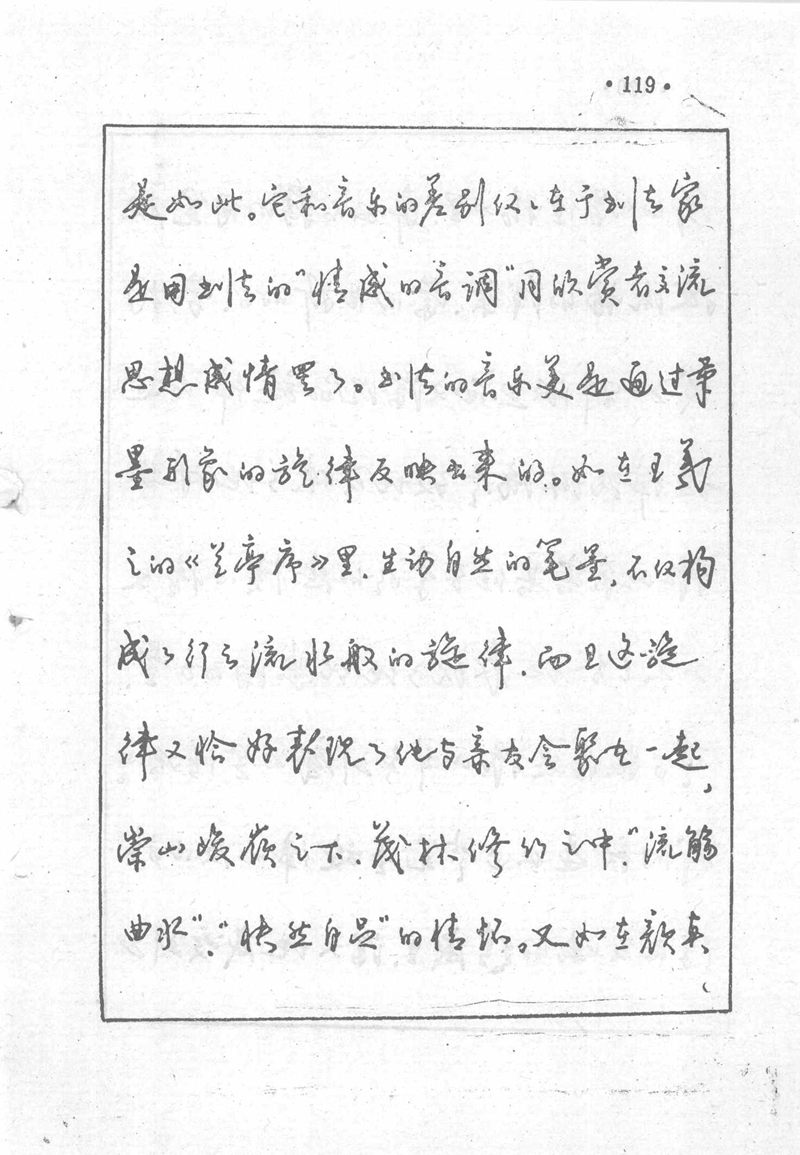 ·119·
是如此。它和音乐的差别仅仅在于书法家
是用书法的“情感的音调”同欣赏者交流
思想感情罢了。书法的音乐美是通过笔
墨形象的旋律反映出来的。如在王羲
之的《兰亭序》里,生动自然的笔墨,不仅构
成了行云流水般的旋律,而且这旋
律又恰好表现了他与亲友会聚在一起,
崇山峻岭之下、茂林修竹之中,“流觞
曲水”、“快然自足”的情怀。又如在颜真